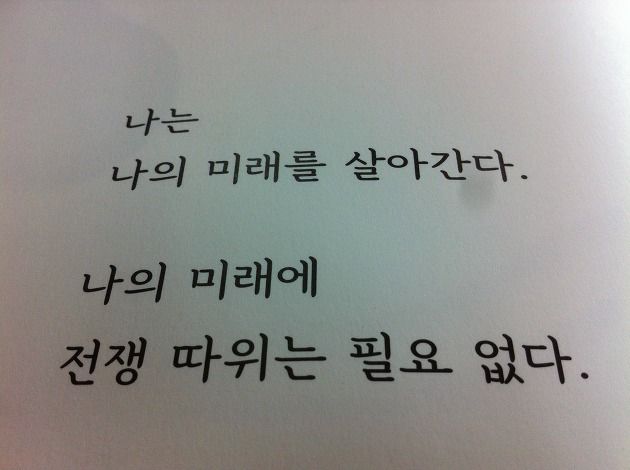 나는
나의 미래를 살아간다.
나의 미래에
전쟁 따위는 필요 없다.